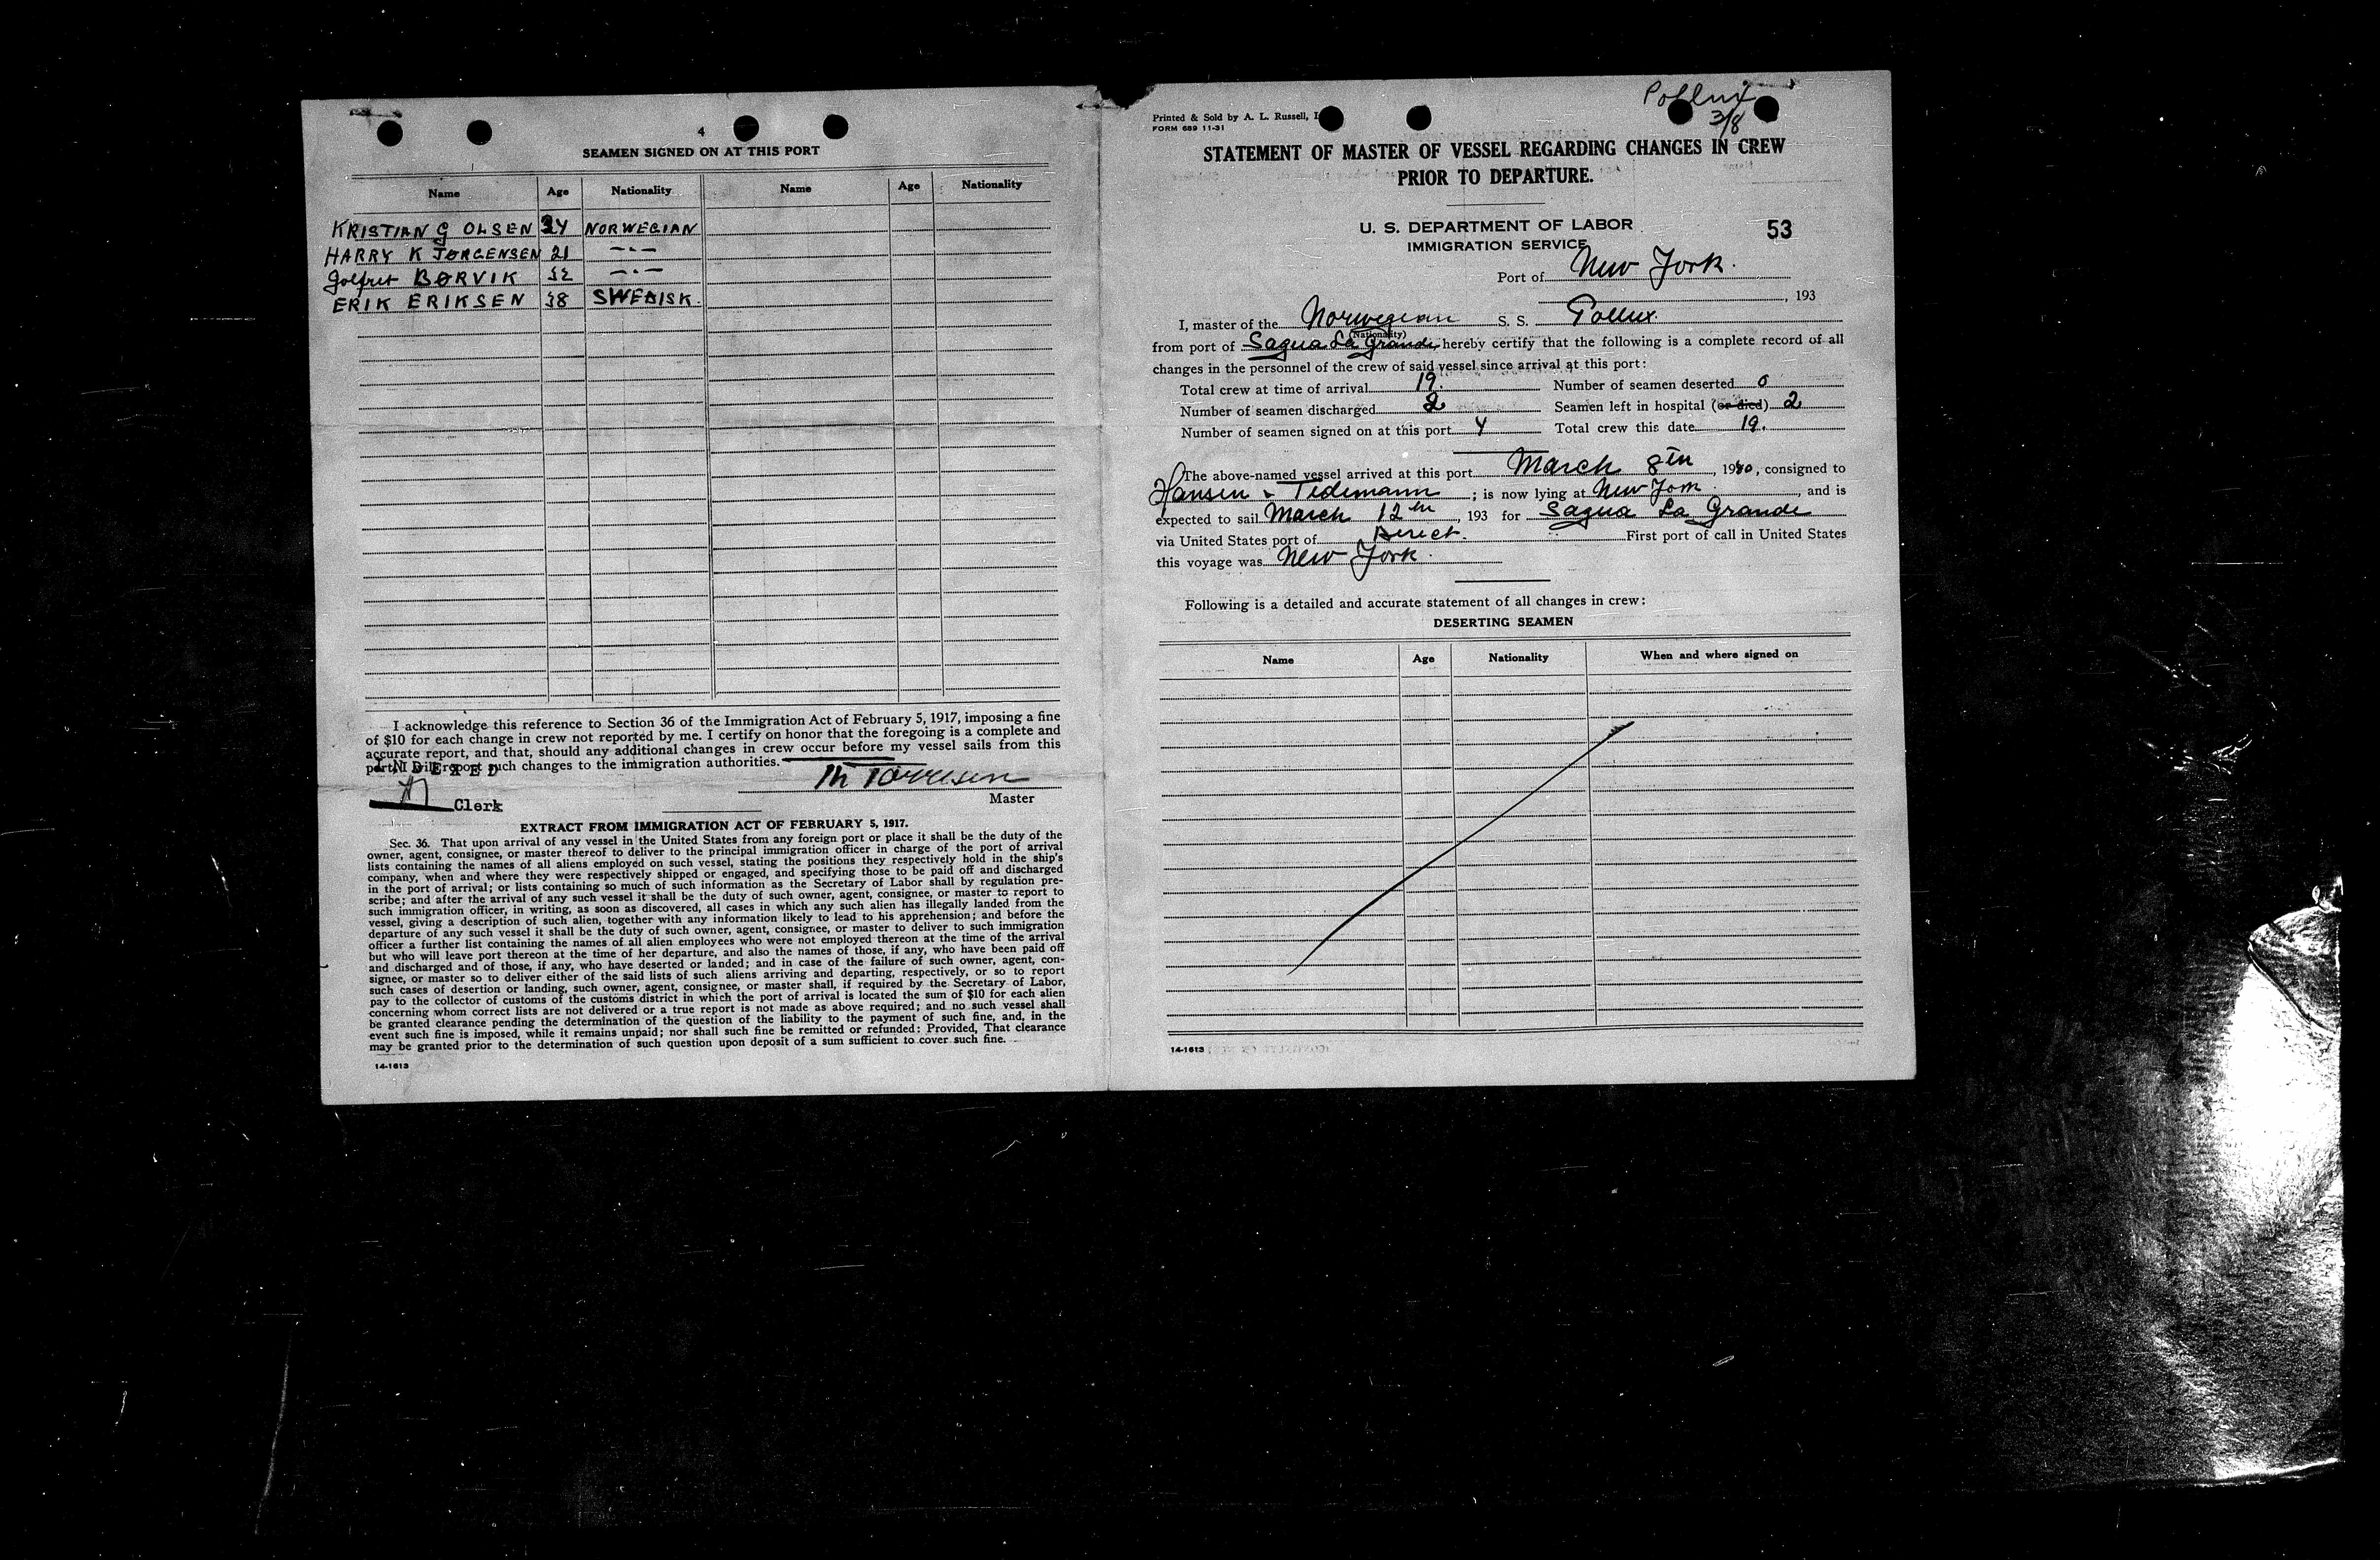 4
SEAMEN SIGNED ON AT THIS PORT
Name Age Nationality Name Age Nationality
KRISTIAN G OLSEN 24 NORWEGIAN
HARRY K JØRGENSEN 21 -"-
BØRVIK -"-
ERIK ERIKSEN 38 SWEDISK.
I acknowledge this reference to Section 36 of the Immigration Act of February 5, 1917, imposing a fine
of $10 for each change in crew not reported by me. I certify on honor that the foregoing is a complete and
accurate report, and that, should any additional changes in crew occur before my vessel sails from this
port, I will report such changes to the immigration authorities.
INDEXED
Th Torresen
Clerk
Master
EXTRACT FROM IMMIGRATION ACT OF FEBRUARY 5, 1917.
Sec. 36. That upon arrival of any vessel in the United States from any foreign port or place it shall be the duty of the
owner, agent, consignee, or master thereof to deliver to the principal immigration officer in charge of the port of arrival
lists containing the names of all aliens employed on such vessel, stating the positions they respectively hold in the ship's
company, when and where they were respectively shipped or engaged, and specifying those to be paid off and discharged
in the port of arrival; or lists containing so much of such information as the Secretary of Labor shall by regulation pre-
scribe; and after the arrival of any such vessel it shall be the duty of such owner, agent, consignee, or master to report to
such immigration officer, in writing, as soon as discovered, all cases in which any such alien has illegally landed from the
vessel, giving a description of such alien, together with any information likely to lead to his apprehension; and before the
departure of any such vessel it shall be the duty of such owner, agent, consignee, or master to deliver to such immigration
officer a further list containing the names of all alien employees who were not employed thereon at the time of the arrival
but who will leave port thereon at the time of her departure, and also the names of those, if any, who have been paid off
and discharged and of those, if any, who have deserted or landed; and in case of the failure of such owner, agent, con-
signee, or master so to deliver either of the said lists of such aliens arriving and departing, respectively, or so to report
such cases of desertion or landing, such owner, agent, consignee, or master shall, if required by the Secretary of Labor,
pay to the collector of customs of the customs district in which the port of arrival is located the sum of $10 for each alien
concerning whom correct lists are not delivered or a true report is not made as above required; and no such vessel shall
be granted clearance pending the determination of the question of the liability to the payment of such fine, and, in the
event such fine is imposed, while it remains unpaid; nor shall such fine be remitted or refunded: Provided, That clearance
may be granted prior to the determination of such question upon deposit of a sum sufficient to cover such fine.
14-1613
Pollux
3/8
Printed & Sold by A. L. Russell,
FORM 689 11-31
STATEMENT OF MASTER OF VESSEL REGARDING CHANGES IN CREW
PRIOR TO DEPARTURE.
U. S. DEPARTMENT OF LABOR
IMMIGRATION SERVICE
53
Port of New York.
, 193
I, master of the Norwegian S. S. Pollux.
(Nationality)
from port of Sagua La Grande, hereby certify that the following is a complete record of all
changes in the personnel of the crew of said vessel since arrival at this port:
Total crew at time of arrival 19. Number of seamen deserted 0
Number of seamen discharged 2 Seamen left in hospital (or died) 2
Number of seamen signed on at this port 4 Total crew this date 19.
The above-named vessel arrived at this port March 8th, 1940, consigned to
Hansen & Tidemann; is now lying at New York, and is
expected to sail March 12th, 193 for Sagua La Grande
via United States port of Direct. First port of call in United States
this voyage was New York.
Following is a detailed and accurate statement of all changes in crew:
DESERTING SEAMEN
Name Age Nationality When and where signed on
14-1613